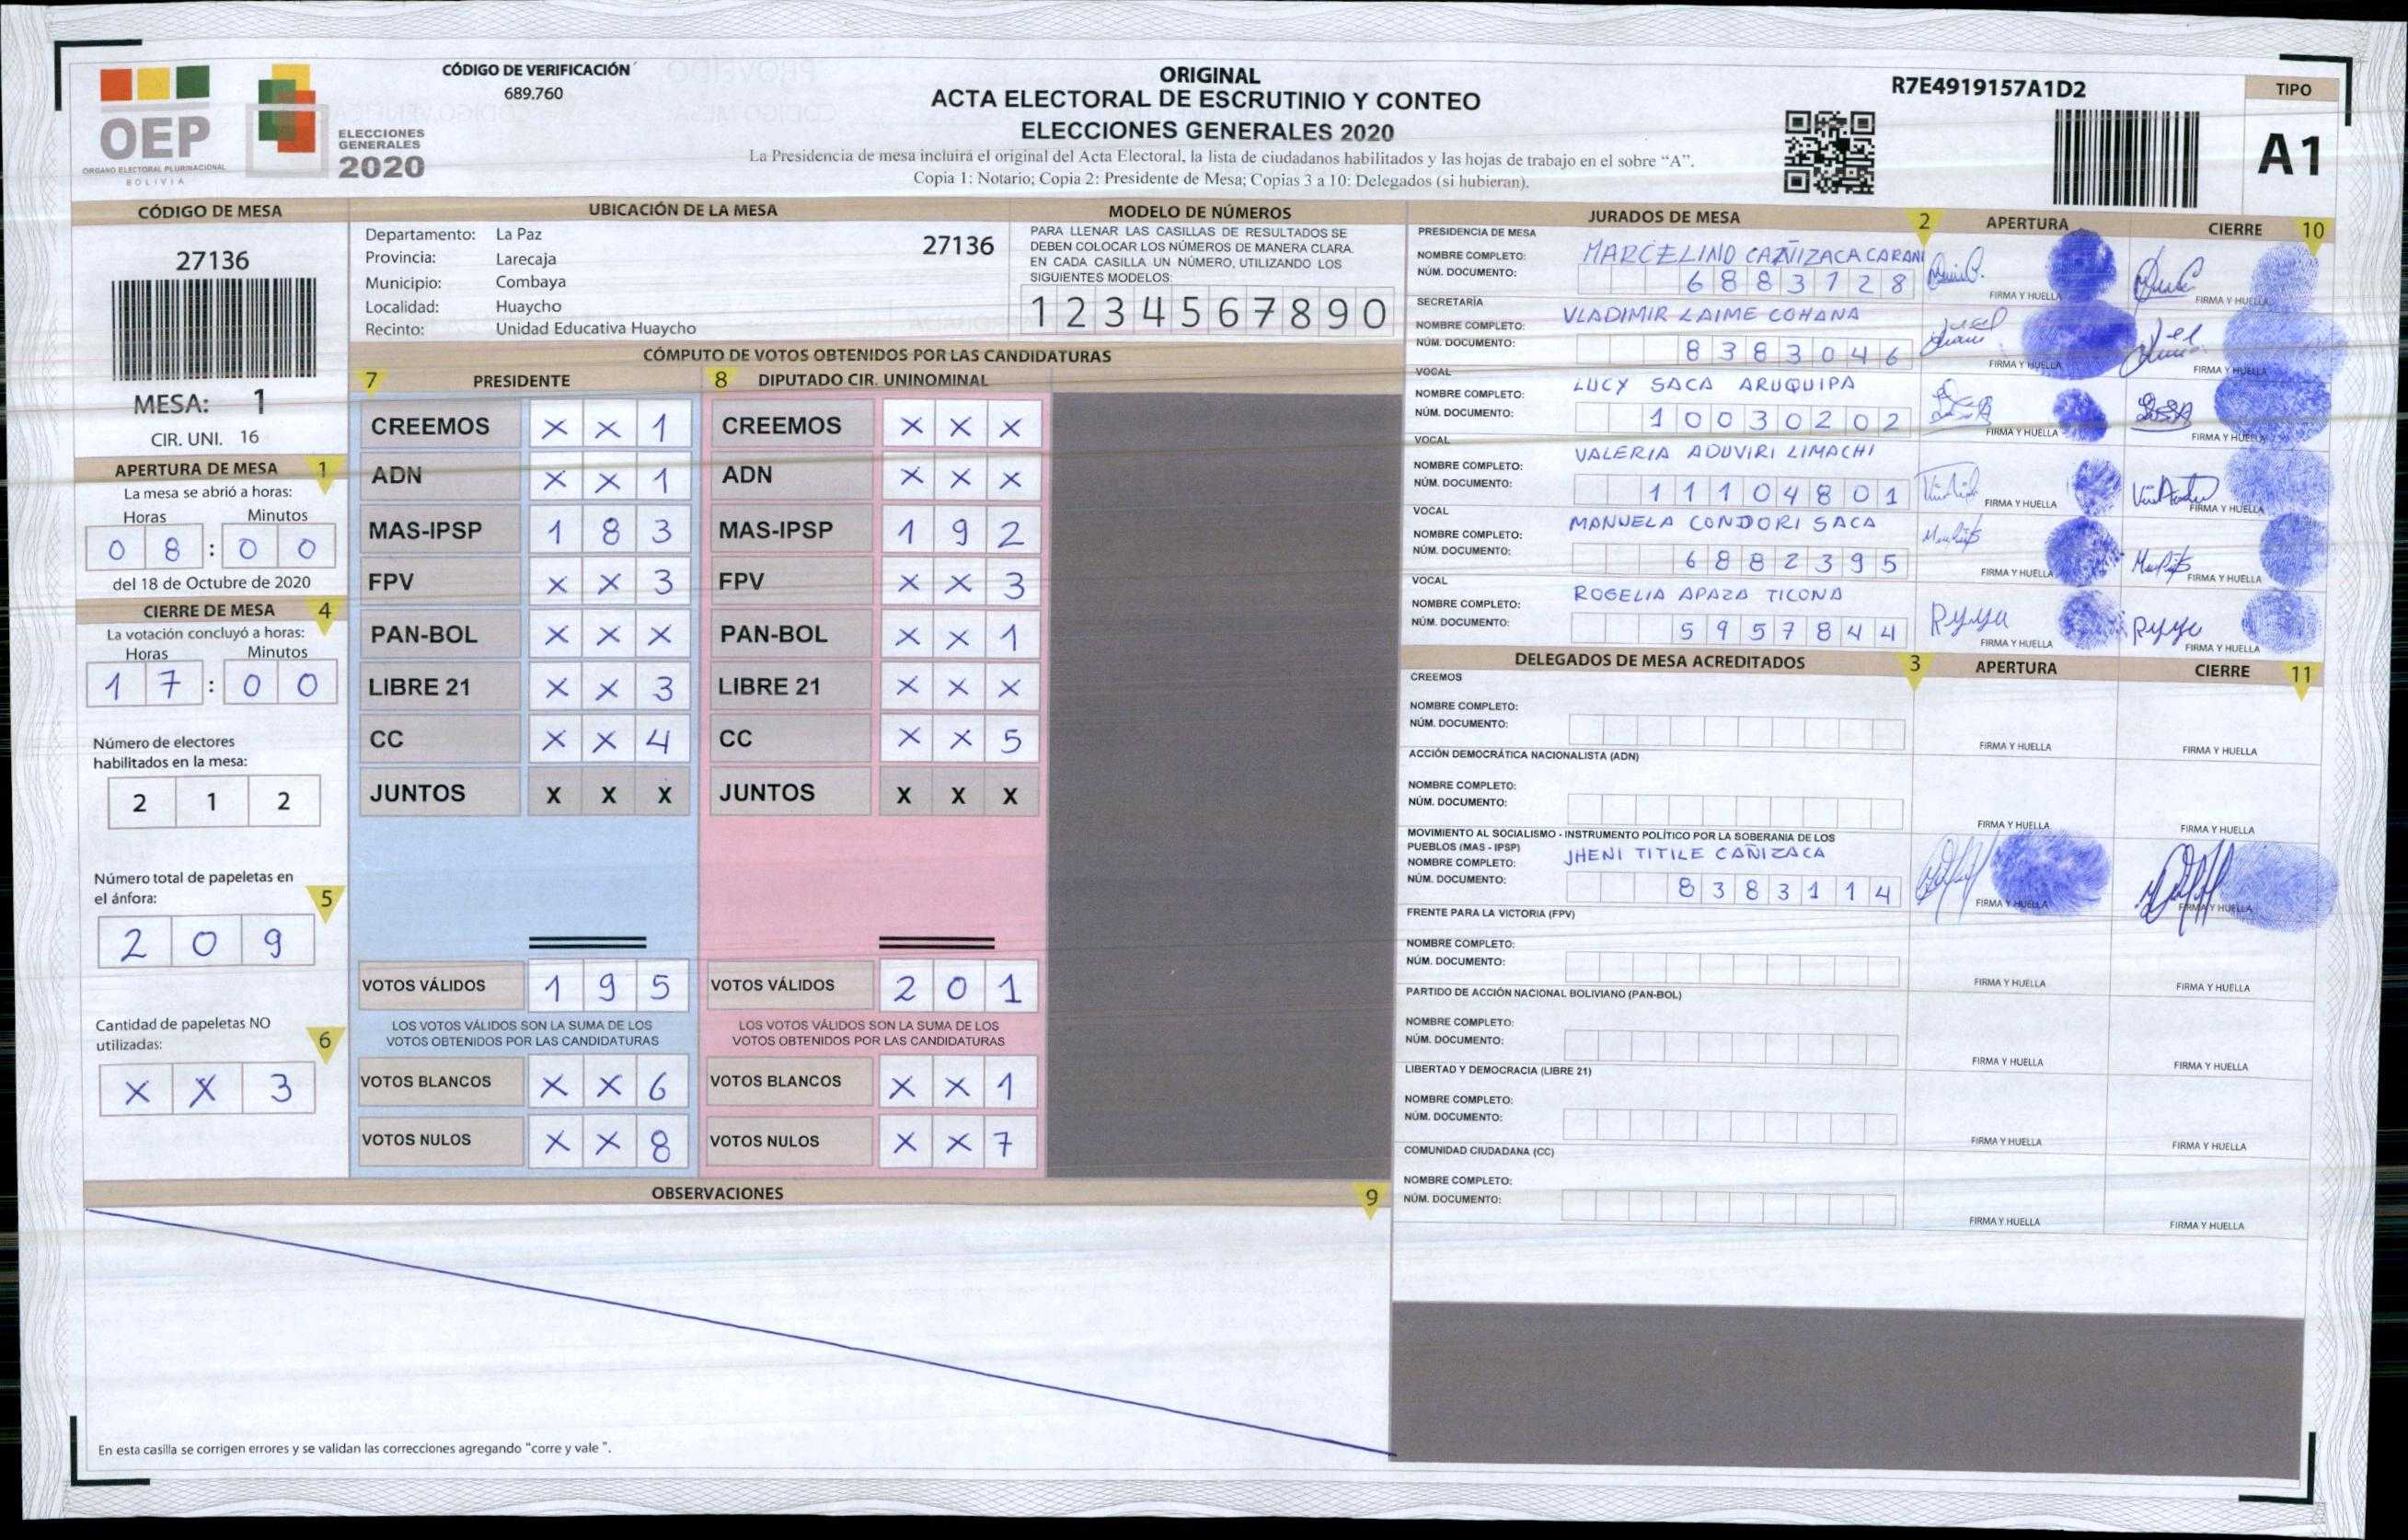 OEP
ÓRGANO ELECTORAL PLURINACIONAL
BOLIVIA
ELECCIONES
GENERALES
2020
CÓDIGO DE VERIFICACIÓN
689.760
ORIGINAL
ACTA ELECTORAL DE ESCRUTINIO Y CONTEO
ELECCIONES GENERALES 2020
La Presidencia de mesa incluirá el original del Acta Electoral, la lista de ciudadanos habilitados y las hojas de trabajo en el sobre “A”.
Copia 1: Notario; Copia 2: Presidente de Mesa; Copias 3 a 10: Delegados (si hubieran).
R7E4919157A1D2
TIPO
A1
CÓDIGO DE MESA
27136
MESA: 1
CIR. UNI. 16
APERTURA DE MESA 1
La mesa se abrió a horas:
Horas Minutos
0 8 : 0 0
del 18 de Octubre de 2020
CIERRE DE MESA 4
La votación concluyó a horas:
Horas Minutos
1 7 : 0 0
Número de electores
habilitados en la mesa:
2 1 2
Número total de papeletas en
el ánfora: 5
2 0 9
Cantidad de papeletas NO
utilizadas: 6
X X 3
UBICACIÓN DE LA MESA
Departamento: La Paz
Provincia: Larecaja
Municipio: Combaya
Localidad: Huaycho
Recinto: Unidad Educativa Huaycho
27136
MODELO DE NÚMEROS
PARA LLENAR LAS CASILLAS DE RESULTADOS SE
DEBEN COLOCAR LOS NÚMEROS DE MANERA CLARA.
EN CADA CASILLA UN NÚMERO, UTILIZANDO LOS
SIGUIENTES MODELOS:
1 2 3 4 5 6 7 8 9 0
CÓMPUTO DE VOTOS OBTENIDOS POR LAS CANDIDATURAS
7 PRESIDENTE 8 DIPUTADO CIR. UNINOMINAL
CREEMOS X X 1 CREEMOS X X X
ADN X X 1 ADN X X X
MAS-IPSP 1 8 3 MAS-IPSP 1 9 2
FPV X X 3 FPV X X 3
PAN-BOL X X X PAN-BOL X X 1
LIBRE 21 X X 3 LIBRE 21 X X X
CC X X 4 CC X X 5
JUNTOS X X X JUNTOS X X X
VOTOS VÁLIDOS 1 9 5 VOTOS VÁLIDOS 2 0 1
LOS VOTOS VÁLIDOS SON LA SUMA DE LOS LOS VOTOS VÁLIDOS SON LA SUMA DE LOS
VOTOS OBTENIDOS POR LAS CANDIDATURAS VOTOS OBTENIDOS POR LAS CANDIDATURAS
VOTOS BLANCOS X X 6 VOTOS BLANCOS X X 1
VOTOS NULOS X X 8 VOTOS NULOS X X 7
OBSERVACIONES 9
En esta casilla se corrigen errores y se validan las correcciones agregando "corre y vale ".
JURADOS DE MESA 2 APERTURA CIERRE 10
PRESIDENCIA DE MESA
NOMBRE COMPLETO: MARCELINO CAÑIZACA CARANI
NÚM. DOCUMENTO: 6 8 8 3 1 2 8
FIRMA Y HUELLA FIRMA Y HUELLA
SECRETARÍA
NOMBRE COMPLETO: VLADIMIR LAIME COHANA
NÚM. DOCUMENTO: 8 3 8 3 0 4 6
FIRMA Y HUELLA FIRMA Y HUELLA
VOCAL
NOMBRE COMPLETO: LUCY SACA ARUQUIPA
NÚM. DOCUMENTO: 1 0 0 3 0 2 0 2
FIRMA Y HUELLA FIRMA Y HUELLA
VOCAL
NOMBRE COMPLETO: VALERIA ADUVIRI LIMACHI
NÚM. DOCUMENTO: 1 1 1 0 4 8 0 1
FIRMA Y HUELLA FIRMA Y HUELLA
VOCAL
NOMBRE COMPLETO: MANUELA CONDORI SACA
NÚM. DOCUMENTO: 6 8 8 2 3 9 5
FIRMA Y HUELLA FIRMA Y HUELLA
VOCAL
NOMBRE COMPLETO: ROGELIA APAZA TICONA
NÚM. DOCUMENTO: 5 9 5 7 8 4 4
FIRMA Y HUELLA FIRMA Y HUELLA
DELEGADOS DE MESA ACREDITADOS 3 APERTURA CIERRE 11
CREEMOS
NOMBRE COMPLETO:
NÚM. DOCUMENTO:
FIRMA Y HUELLA FIRMA Y HUELLA
ACCIÓN DEMOCRÁTICA NACIONALISTA (ADN)
NOMBRE COMPLETO:
NÚM. DOCUMENTO:
FIRMA Y HUELLA FIRMA Y HUELLA
MOVIMIENTO AL SOCIALISMO - INSTRUMENTO POLÍTICO POR LA SOBERANIA DE LOS
PUEBLOS (MAS - IPSP)
NOMBRE COMPLETO: JHENI TITILE CAÑIZACA
NÚM. DOCUMENTO: 8 3 8 3 1 1 4
FIRMA Y HUELLA FIRMA Y HUELLA
FRENTE PARA LA VICTORIA (FPV)
NOMBRE COMPLETO:
NÚM. DOCUMENTO:
FIRMA Y HUELLA FIRMA Y HUELLA
PARTIDO DE ACCIÓN NACIONAL BOLIVIANO (PAN-BOL)
NOMBRE COMPLETO:
NÚM. DOCUMENTO:
FIRMA Y HUELLA FIRMA Y HUELLA
LIBERTAD Y DEMOCRACIA (LIBRE 21)
NOMBRE COMPLETO:
NÚM. DOCUMENTO:
FIRMA Y HUELLA FIRMA Y HUELLA
COMUNIDAD CIUDADANA (CC)
NOMBRE COMPLETO:
NÚM. DOCUMENTO:
FIRMA Y HUELLA FIRMA Y HUELLA